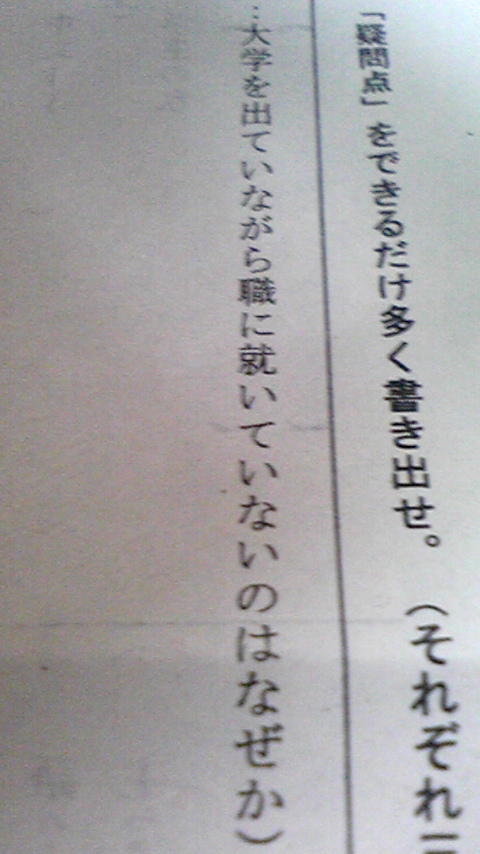 「疑問点」をできるだけ多く書き出せ。（それぞれ
…大学を出ていながら職に就いていないのはなぜか）